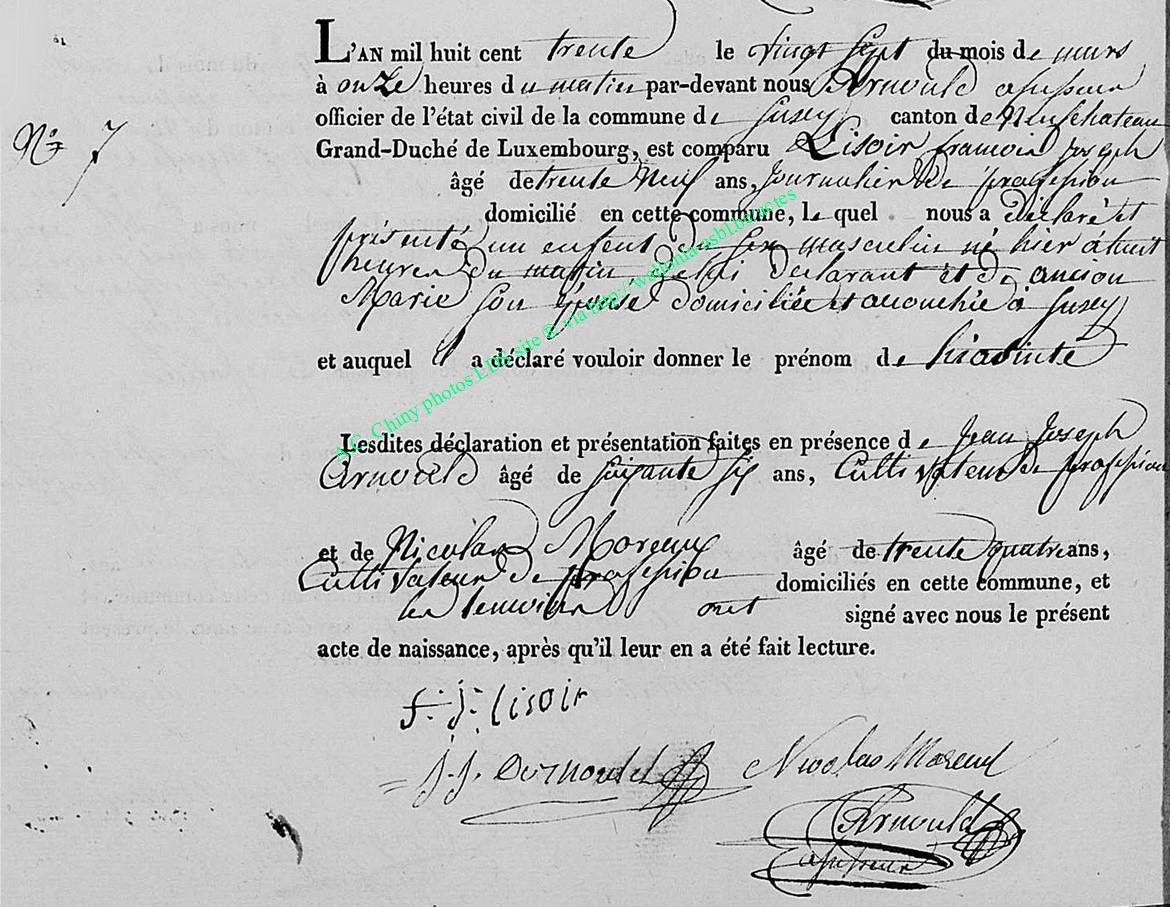 L'AN mil huit cent trente le vingt sept du mois de mars
à onze heures du matin par-devant nous Arnould assesseur
officier de l'état civil de la commune de Jusey canton de Neufchateau
N° 7
Grand-Duché de Luxembourg, est comparu Lisoir francois Joseph
âgé de trente Neuf ans, Journalier de profession
domicilié en cette commune, le quel nous a déclaré et
présenté un enfant du sex masculin né hier à huit
heures du matin, de lui déclarant et de ancion
Marie son épouse domiciliée et accouchée à Jusey
et auquel il a déclaré vouloir donner le prénom de hiacinte
A.C. Chiny photos LDS site @ via http://wallonia-asbl.be/actes
Lesdites déclaration et présentation faites en présence de Jean Joseph
Arnould âgé de soixante six ans, Cultivateur de profession
et de Nicolas Moreaux âgé de trente quatre ans,
Cultivateur de profession domiciliés en cette commune, et
les temoins ont signé avec nous le présent
acte de naissance, après qu'il leur en a été fait lecture.
f: j: lisoir
j. j. Nicolas Moreau
Arnould
assesseur